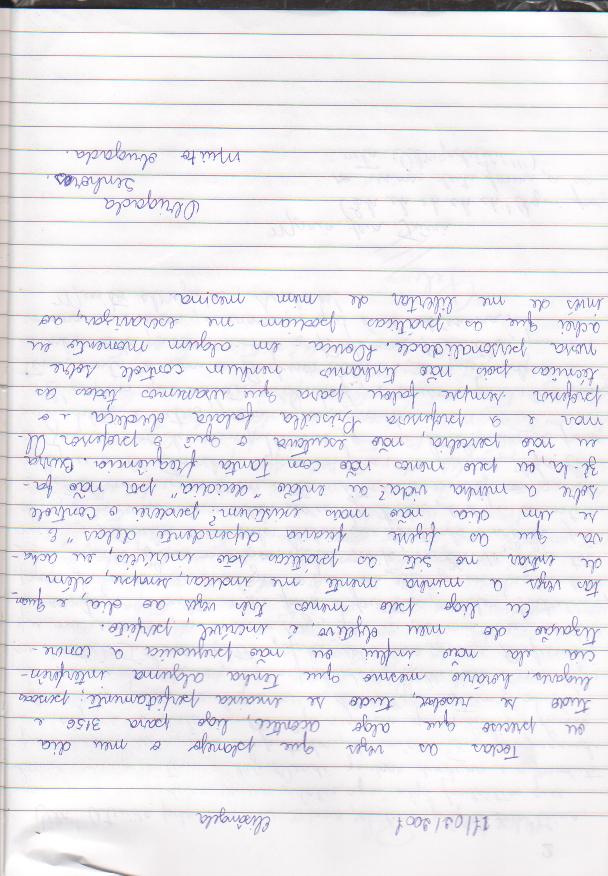 2
17/03/2007 Elisângela
Todas as vezes que planejo o meu dia
ou preciso que algo aconteça, ligo para 3156 e
tudo se resolve, tudo se encaixa perfeitamente; pessoas
lugares, horário, mesmo que tenha alguma interferên-
cia ela não influi ou não prejudica a concre-
tização do meu objetivo, é incrível, perfeito.
Eu ligo pelo menos três vezes ao dia, e quan-
tas vezes a minha mente me indicar, sempre, além
de entrar no site as práticas são incríveis, eu acha-
va que as fizesse ficaria dependente delas "E
se um dia não mais existirem? perderei o controle
sobre a minha vida? aí então "decidia" por não fa-
zê-la, ou pelo menos não com tanta freqüência. Burra.
eu não percebia, não escutava o que o professor Al-
mar e a professora Priscilla falava olvidáva e o
professor sempre falou para que usarmos todas as
técnicas pois não tínhamos nenhum controle sobre
nossa personalidade. Louca em algum momento eu
achei que as práticas podiam me escravizar, ao
invés de me libertar de mim mesma.
Obrigada
Senhores.
Muito obrigada.